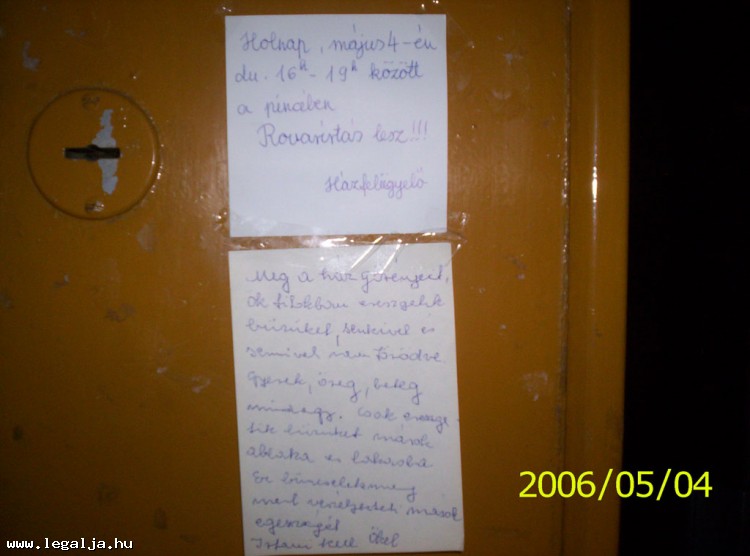 Holnap, május 4-én
du. 16h - 19h között
a pincében
Rovarirtás lesz!!!
Házfelügyelő
Meg a ház görényeit,
ők titokban eresztik
bűzüket, senkivel és
semivel nem törődve.
Gyerek, öreg, beteg
mindegy. Csak eresz
tik bűzüket mások
ablaka és lakásába
Ez bűncselekmény
mert veszélyezteti mások
egészségét
kell
2006/05/04
www.legalja.hu